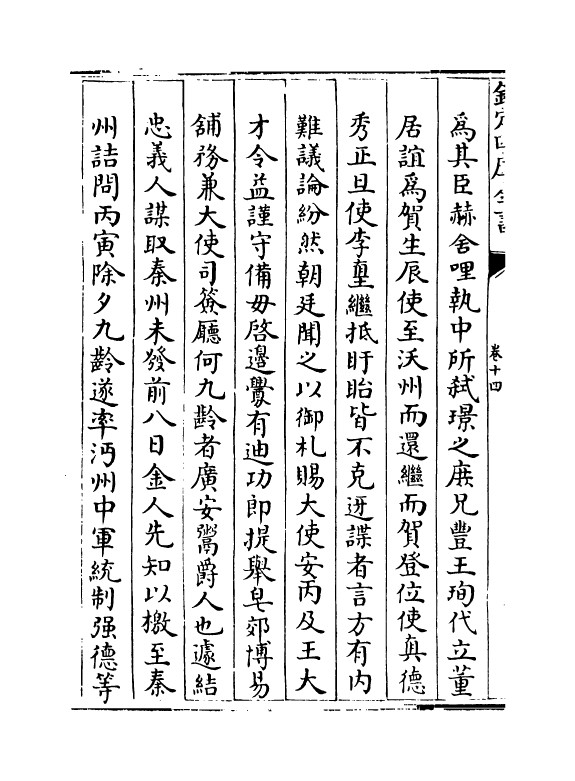 欽定四庫全書
卷十四
為其臣赫舍哩執中所弑璟之庻兄豐王珣代立董
居誼為賀生辰使至沃州而還繼而賀登位使真德
秀正旦使李壐繼抵盱眙皆不克迓諜者言方有内
難議論紛然朝廷聞之以御札賜大使安丙及王大
才令益謹守備毋啓邉釁有迪功郎提舉皂郊博易
舖務兼大使司簽廳何九齡者廣安鬻爵人也遽結
忠義人謀取秦州未發前八日金人先知以檄至秦
州詰問丙寅除夕九齡遂率沔州中軍統制强德等